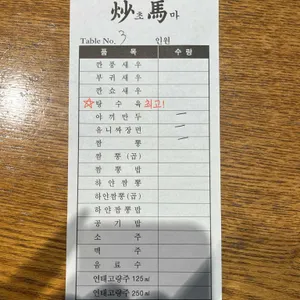 炒초 馬마
Table No. 3 인원
품 목 수 량
깐 풍 새 우
부 귀 새 우
깐 쇼 새 우
☆탕 수 육 최고!
야 끼 만 두 一
유 니 짜 장 면 二
짬 뽕 一
짬 뽕 (곱)
짬 뽕 밥
하 얀 짬 뽕
하얀짬뽕 (곱)
하 얀 짬 뽕 밥
공 기 밥
소 주
맥 주
음 료 수
연태고량주 125㎖
연태고량주 250㎖